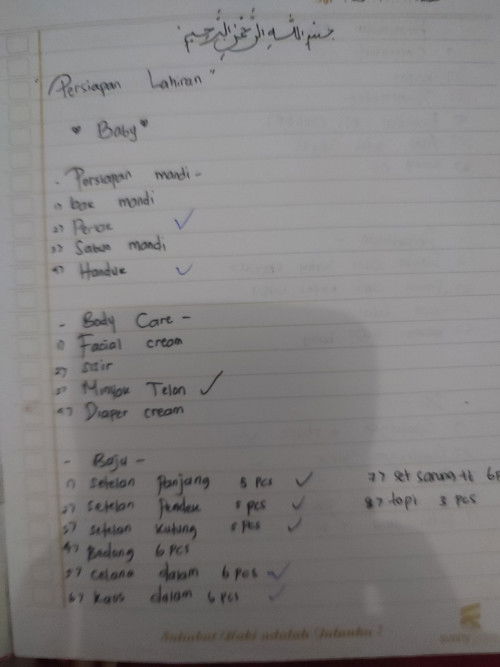 بسم الله الرحمن الرحيم
"Persiapan Lahiran"
♥ Baby ♥
- Persiapan mandi -
1) bak mandi
2)
3) Sabun mandi
4) Handuk
- Body Care -
1) Facial cream
2) sisir
3) Minyak Telon
4) Diaper cream
- Baju -
1) setelan Panjang 5 pcs
2) setelan Pendek 5 pcs
3) setelan kutung 5 pcs
4) Bedong 6 pcs
5) celana dalam 6 pcs
6) kaus dalam 6 pcs
7) set sarung
8) topi 3 pcs